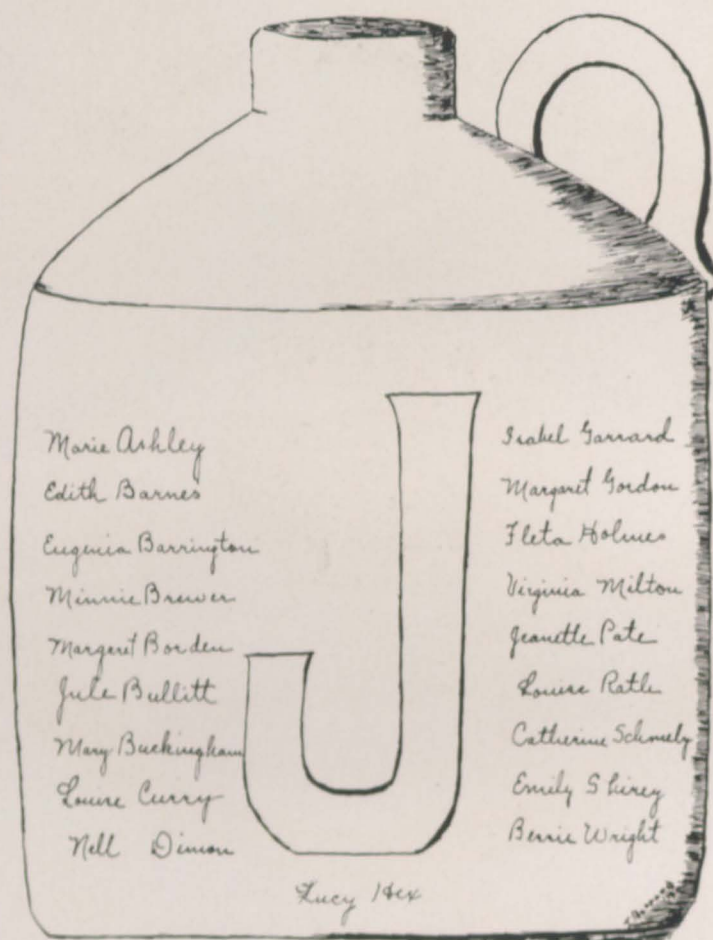 Marie Ashley
Edith Barnes
Eugenia Barrington
Minnie Brewer
Margaret Borden
Jule Bullitt
Mary Buckingham
Louise Curry
Nell Dimon
J
Isabel Garrard
Margaret Gordon
Fleta Holmes
Virginia Milton
Jeanette Pate
Louise
Catherine
Emily Shirey
Berrie Wright
Lucy